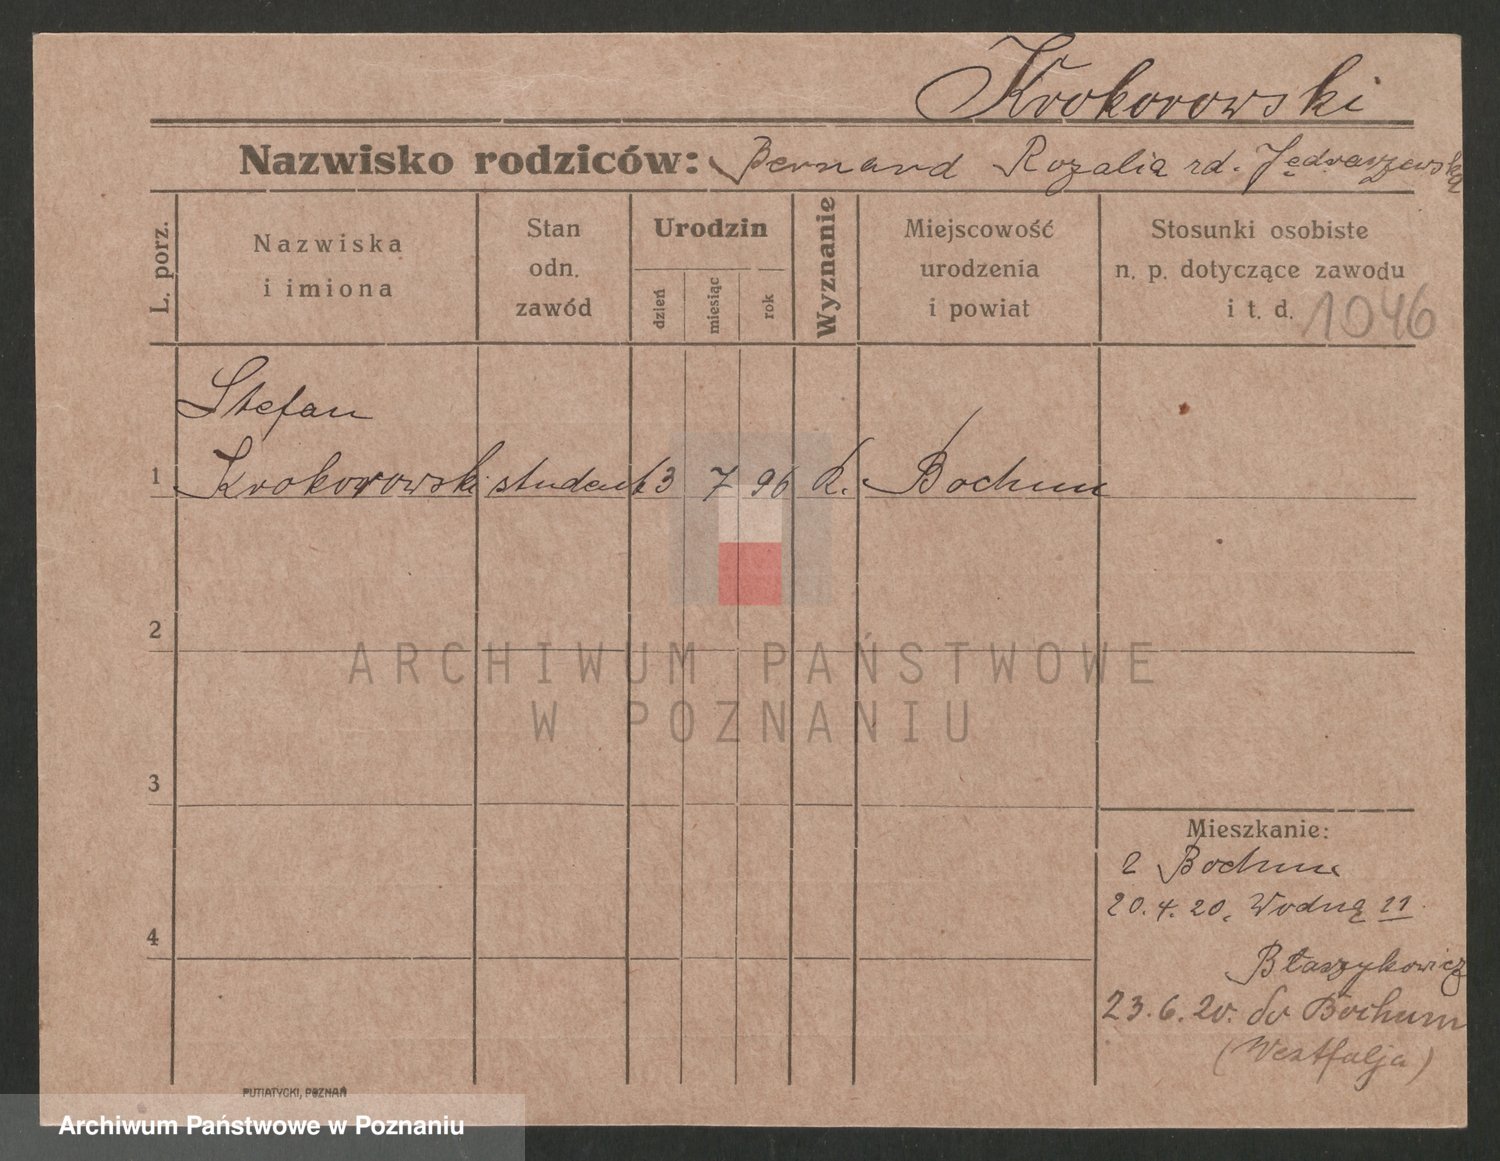 Krokorowski
Nazwisko rodziców: Bernard Rozalia rd. Jędraszewska
L. porz.
Nazwiska
i imiona
Stan
odn.
zawód
Urodzin
dzień
miesiąc
rok
Wyznanie
Miejscowość
urodzenia
i powiat
Stosunki osobiste
n. p. dotyczące zawodu
i t. d.
1046
Stefan
1 Krokorowski student 3 7 96 R. Bochum
2
3
4
ARCHIWUM PAŃSTWOWE
W POZNANIU
Mieszkanie:
z Bochum
20.4.20. Wodna 11
Błaszykowicz
23.6.20. do Bochum
(Westfalja)
PUTIATYCKI, POZNAŃ
Archiwum Państwowe w Poznaniu